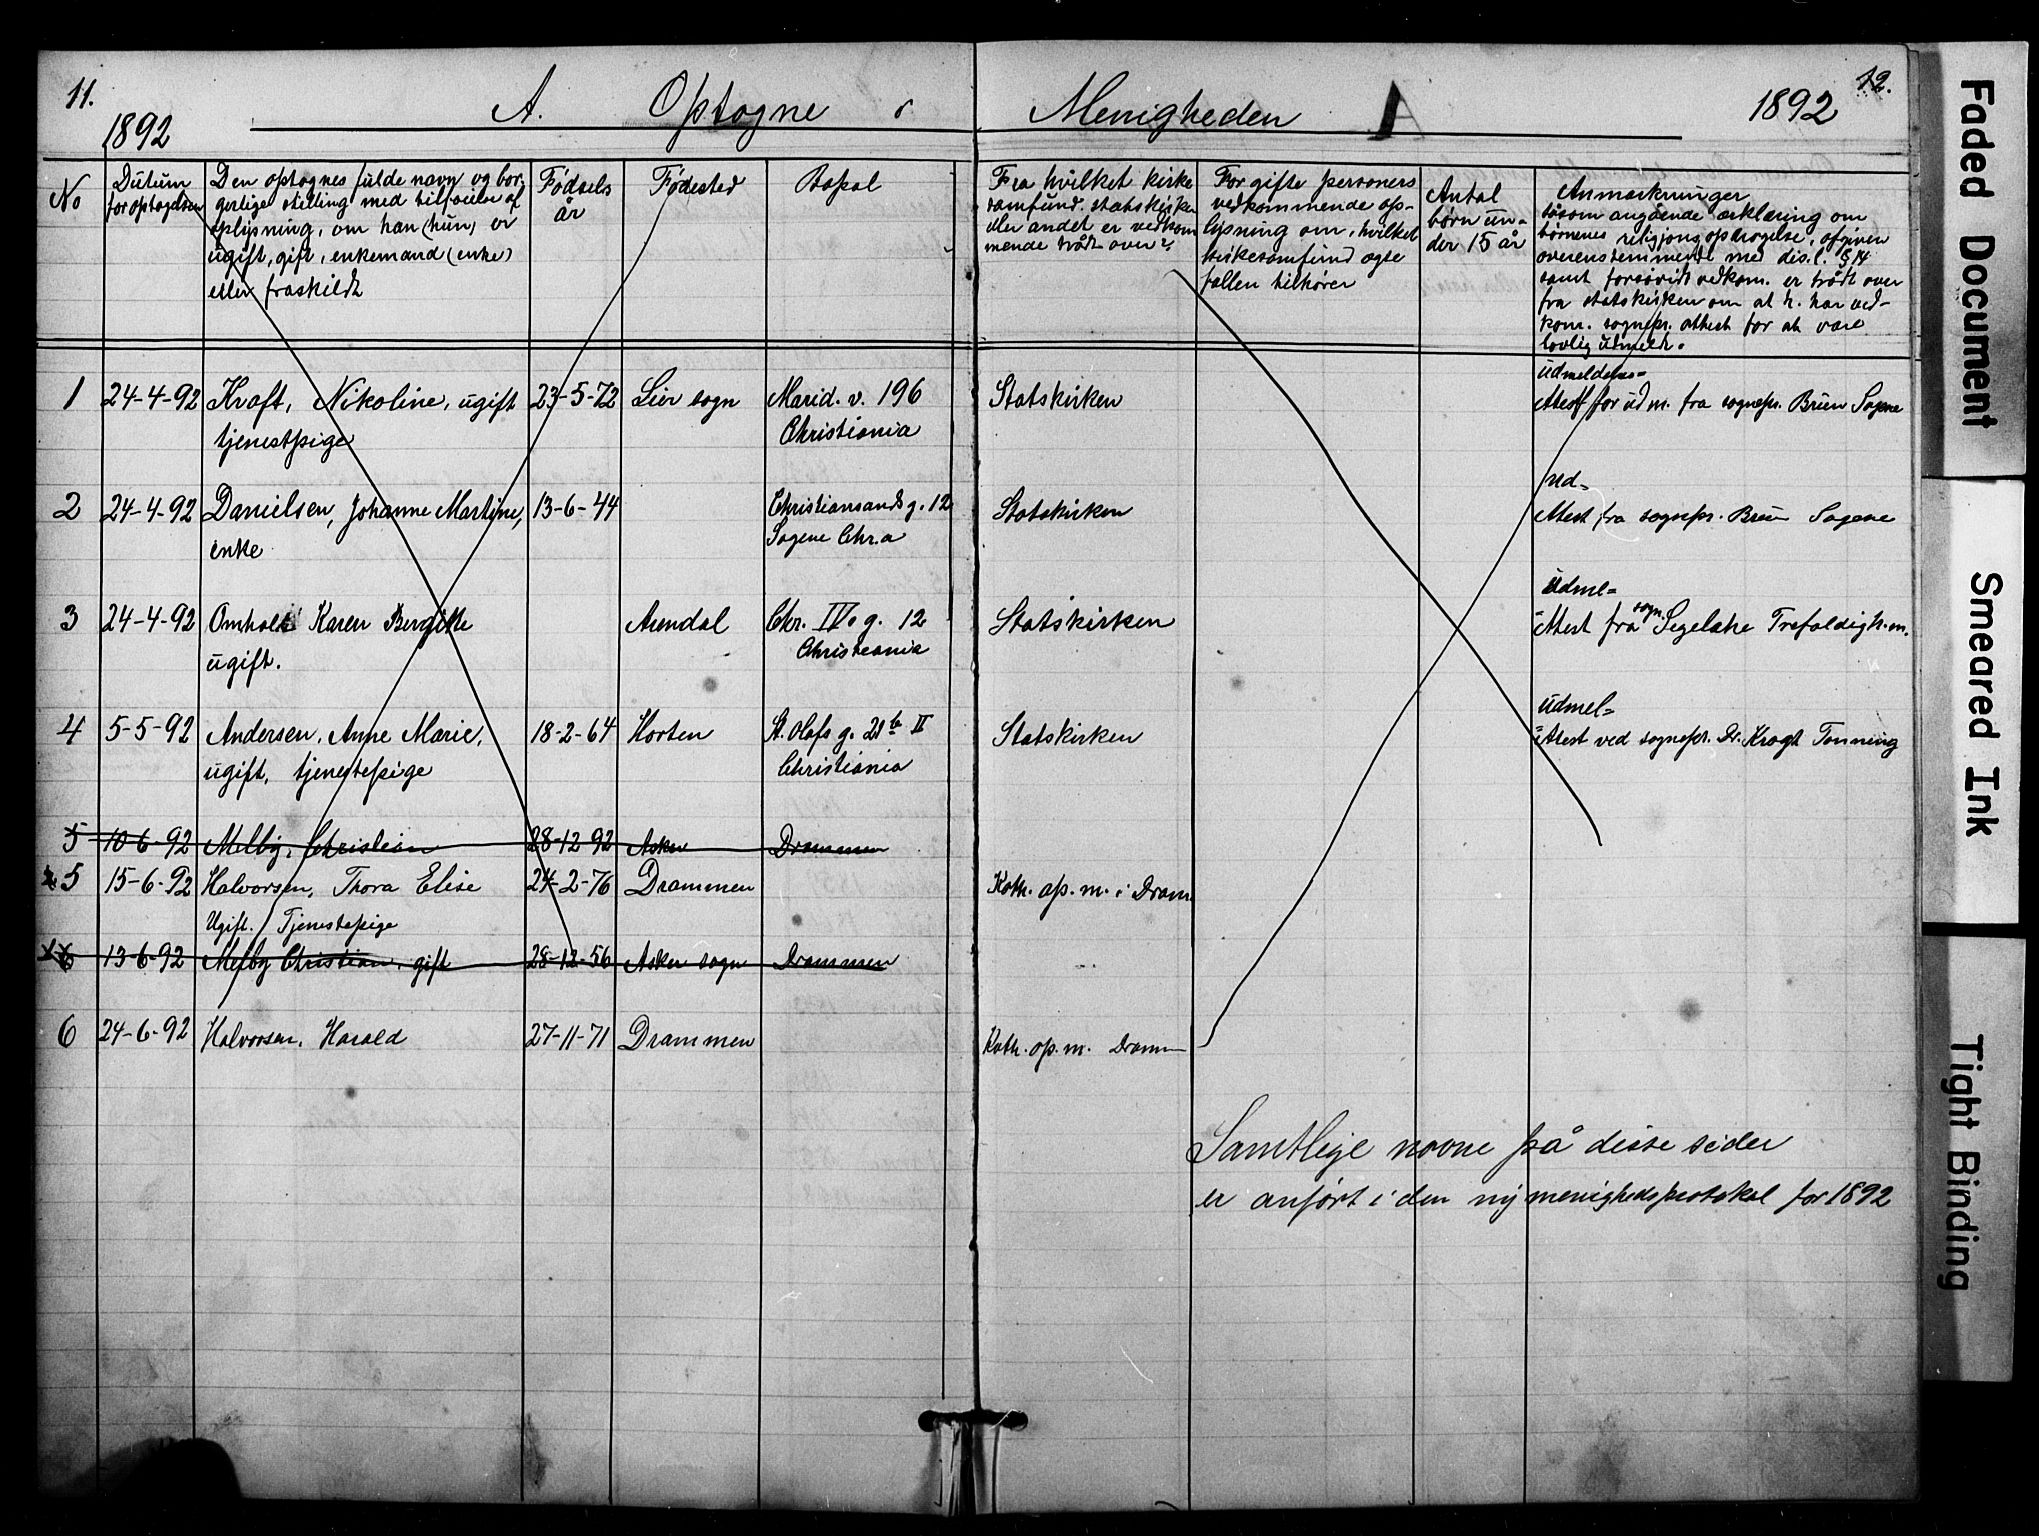 11.
1892
A. Optagne i
Menigheden
1892
12.
No
Datum for optagelsen
Den optagnes fulde navn og bor-
gerlige stilling med tilføielse af
oplysning, om han (hun) er
ugift, gift, enkemand (enke)
eller fraskildt
Fødsels år
Fødested
Bopæl
Fra hvilket kirke
samfund. statskirken
eller andet er vedkom
mende trådt over?
For gifte personers
vedkommende op-
lysning om, hvilket
kirkesamfund ægte
fællen tilhører
Antal
børn un-
der 15 år
Anmærkninger
såsom angående erklæring om
børnenes religjons opdragelse, afgiven
overensstemmende med dis. l. § 14
samt forsåvidt vedkom. er trådt over
fra statskirken om at h. har ved-
kom. sognepr. attest for at være
lovlig udmeldt.
1 24-4-92 Kraft, Nikoline, ugift 23-5-72 Lier sogn Marid. v. 196 Statskirken
udmeldelses=
Attest for udm. fra sognepr. Brun Sagene
tjenestpige Christiania
2 24-4-92 Danielsen, Johanne Martine, 13-6-44 Christiansands g. 12 Statskirken
ud=
Attest fra sognepr. Brun Sagene
enke Sagene Chr.a
3 24-4-92 Omholt Karen Bergitte Arendal Chr. IV. g. 12 Statskirken
udmel=
Attest fra sogn. Segelcke Trefoldigh. m.
ugift. Christiania
4 5-5-92 Andersen, Anne Marie, 18-2-64 Horten St. Olafs g. 21b II Statskirken
udmel=
Attest ved sognepr. Dr. Krogh Tonning
ugift, tjenestepige Christiania
5 10-6-92 Melby, Christian 28-12-92 Asker Drammen
5 15-6-92 Halvorsen, Thora Elise 24-2-76 Drammen Kath. ap. m. i Dram.
Ugift. Tjenestepige
6 13-6-92 Melby Christian, gift 28-12-56 Asker sogn Drammen
6 24-6-92 Halvorsen, Harald 27-11-71 Drammen Kath. ap. m. Dramm
Samtlige navne på disse sider
er anført i den ny menighedsprotokol for 1892
Faded Document
Smeared Ink
Tight Binding